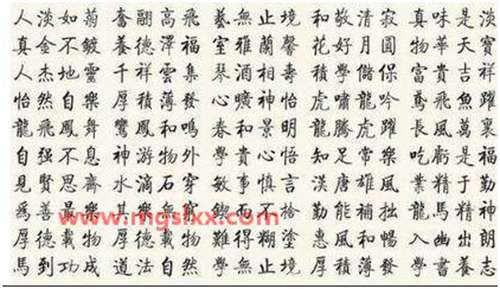 人淡如菊 奮翮高飛 藝無止境 和敬清寂 真味是淡
真金不鍍 養德澤福 室雅蘭馨 花好月圓 物華天寶
人杰地靈 千祥雲集 琴酒相壽 學儲 富貴吉祥
怡然自樂 厚積薄發 心曠神怡 虎嘯龍吟 鳶飛魚躍
龍飛鳳舞 鸞鳳和鳴 春和景明 龍騰虎躍 長風萬裏
自强不息 神游物外 學貴心悟 知足常樂 吃虧是福
見賢思齊 水滴石穿 敏事慎言 漢唐雄風 業精于勤
爲善最樂 其樂無窮 鍥而不捨 勤能補拙 龍馬精神
www.mgslxx.com
厚德載物 難得糊塗 惠風和暢 入幽出朗
馬到功成 道法自然 學無止境 厚積薄發 學書養志